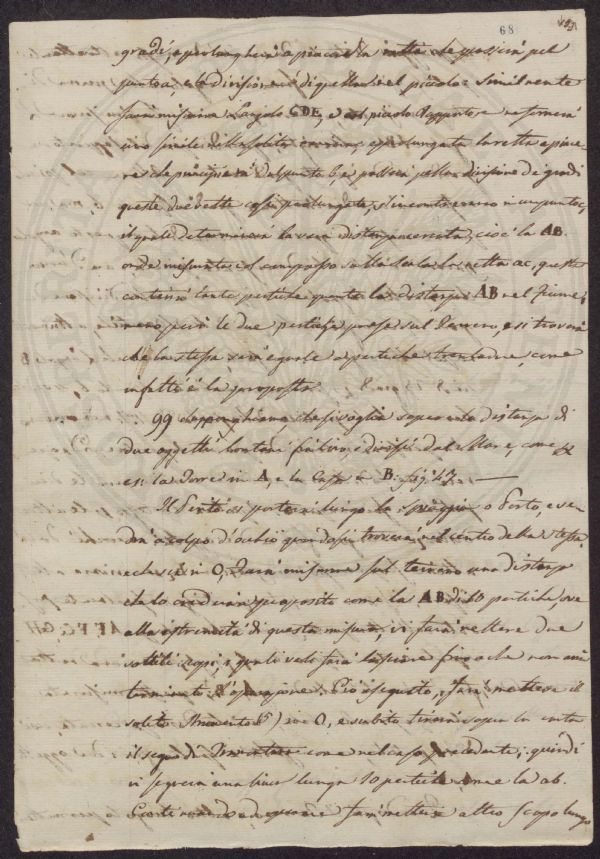 68
gradi, e prolungherà a piacere la retta che passerà pel
punto a, e la divisione di quella nel piccolo. Similmente
farà misurare l'angolo CDE, e col piccolo Rapportatore ne formerà
uno simile
re che principierà dal punto b, e passerà pella divisione de gradi
queste due rette così prolungate, s'incontreranno in un punto c,
il quale determinerà la vera distanza cercata, cioè la AB.
onde misurata col compasso sulla scala la retta ac, questa
conterrà tante pertiche quanta la distanza AB nel Fiume,
meno però le due pertiche prese sul Terreno, e si troverà
che la stessa sarà eguale a pertiche trentadue, come
infatti è la proposta.
99 Supponghiamo che si voglia sapere una distanza di
due oggetti lontani fra loro, e divisi dal Mare, come
è la Torre in A, e la Casa in B. fig. 43.
Il Perito si porterà lungo la spiaggia o Porto, e ve-
drà a colpo d'occhio quando si troverà nel centro della stessa
e che sia in O, Farà misurare sul terreno una distanza
che lo crederà a proposito come la AB di 10 pertiche, ove
alla estremità di questa misura, vi farà mettere due
sottili scopi, i quali vedi farà lasciare fino a che non avrà
terminato l'operazione. Ciò eseguito, farà mettere il
solito Strumento in O, e subito tirerà sopra la carta
il segno di come nel caso precedente; quindi
vi segnerà una linea lunga 10 pertiche come la ab.
farà mettere altro Scopo lungo